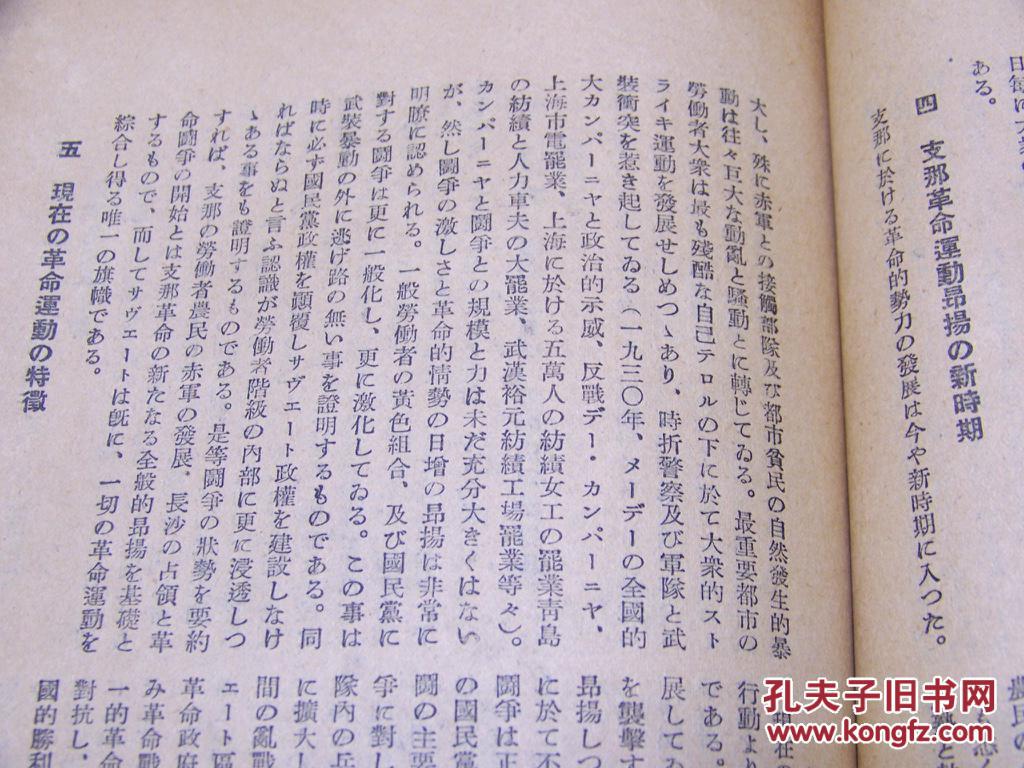 ある。
四 支那革命運動昂揚の新時期
支那に於ける革命的勢力の發展は今や新時期に入つた。
大し、殊に赤軍との接觸部隊及び都市貧民の自然發生的暴
動は往々巨大な動亂と騷動とに轉じてゐる。最重要都市の
勞働者大衆は最も殘酷な自己テロルの下に於て大衆的スト
ライキ運動を發展せしめつゝあり、時折警察及び軍隊と武
裝衝突を惹き起してゐる（一九三〇年、メーデーの全國的
大カンパーニヤと政治的示威、反戰デー・カンパーニヤ、
上海市電罷業、上海に於ける五萬人の紡績女工の罷業青島
の紡績と人力車夫の大罷業、武漢裕元紡績工場罷業等々）。
カンパーニヤと鬪爭との規模と力は未だ充分大きくはない
が、然し鬪爭の激しさと革命的情勢の日增の昂揚は非常に
明瞭に認められる。一般勞働者の黃色組合、及び國民黨に
對する鬪爭は更に一般化し、更に激化してゐる。この事は
武裝暴動の外に逃げ路の無い事を證明するものである。同
時に必ず國民黨政權を顚覆しサヴェート政權を建設しなけ
ればならぬと言ふ認識が勞働者階級の內部に更に浸透しつ
ゝある事をも證明するものである。是等鬪爭の狀勢を要約
すれば、支那の勞働者農民の赤軍の發展、長沙の占領と革
命鬪爭の開始とは支那革命の新たなる全般的昂揚を基礎と
するもので、而してサヴェートは旣に、一切の革命運動を
綜合し得る唯一の旗幟である。
五 現在の革命運動の特徵
農民の
行動より
である。
展してゐ
を襲擊す
昂揚しつ
に於て不
鬪爭は正
の國民黨
鬪の主要
爭に對し
隊內の兵
に擴大し
間の亂戰
ェート區
革命政府
み革命戰
一的革命
對抗し、
國的勝利
孔夫子旧书网
www.kongfz.com